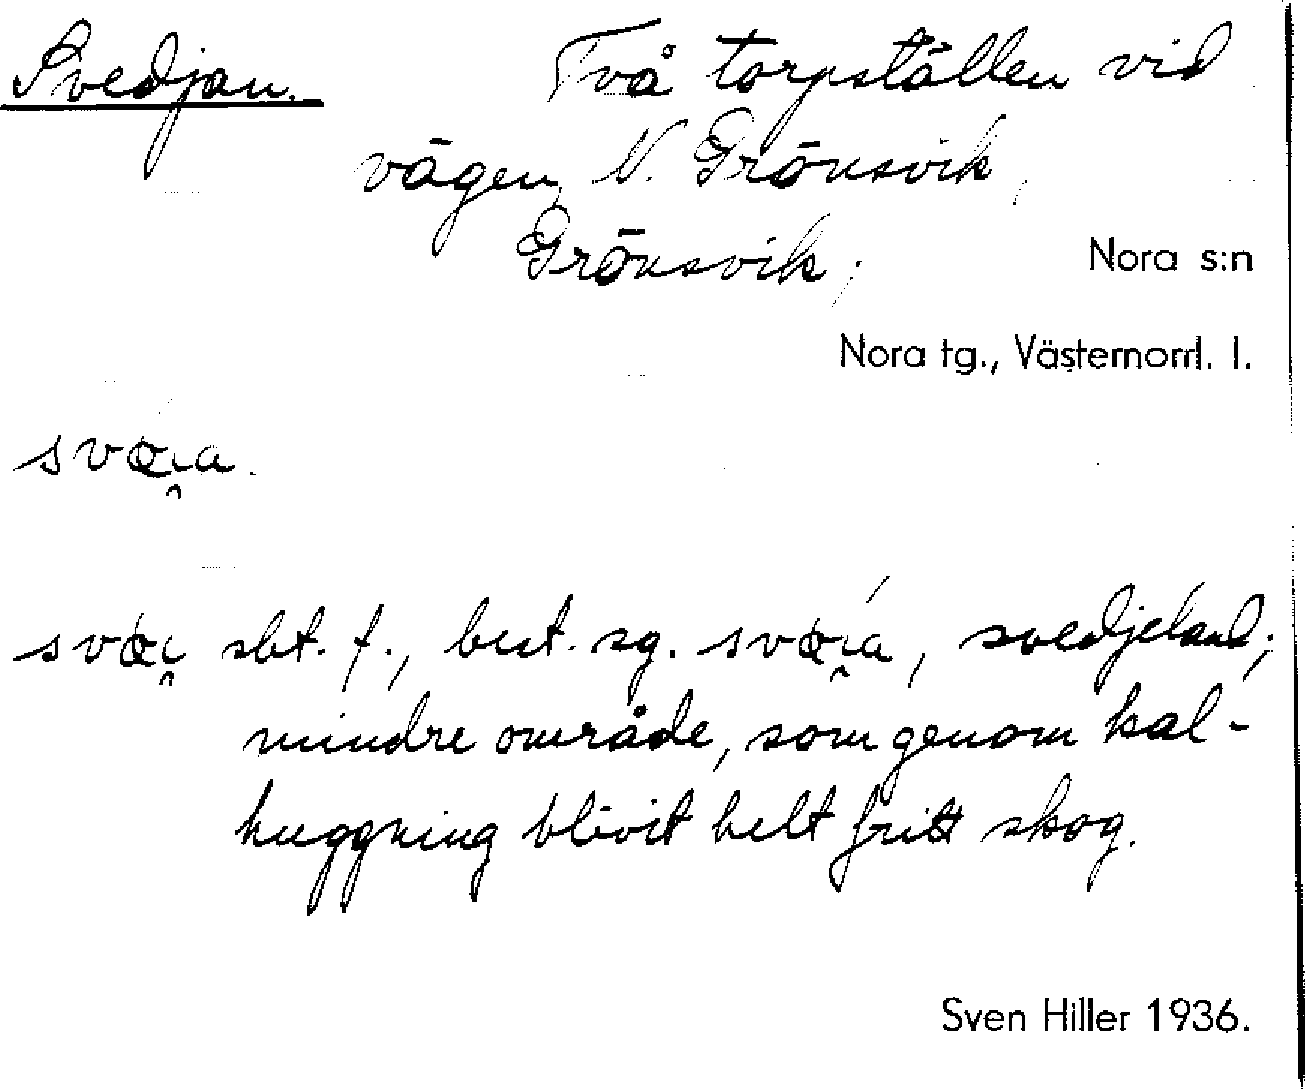 Svedjan. Två torpställen vid
vägen, N. Grönsvik,
Grönsvik; Nora s:n
Nora tg., Västernorrl. l.
sbt. f., best. sg. , svedjeland;
mindre område, som genom kal-
huggning blivit helt fritt skog.
Sven Hiller 1936.